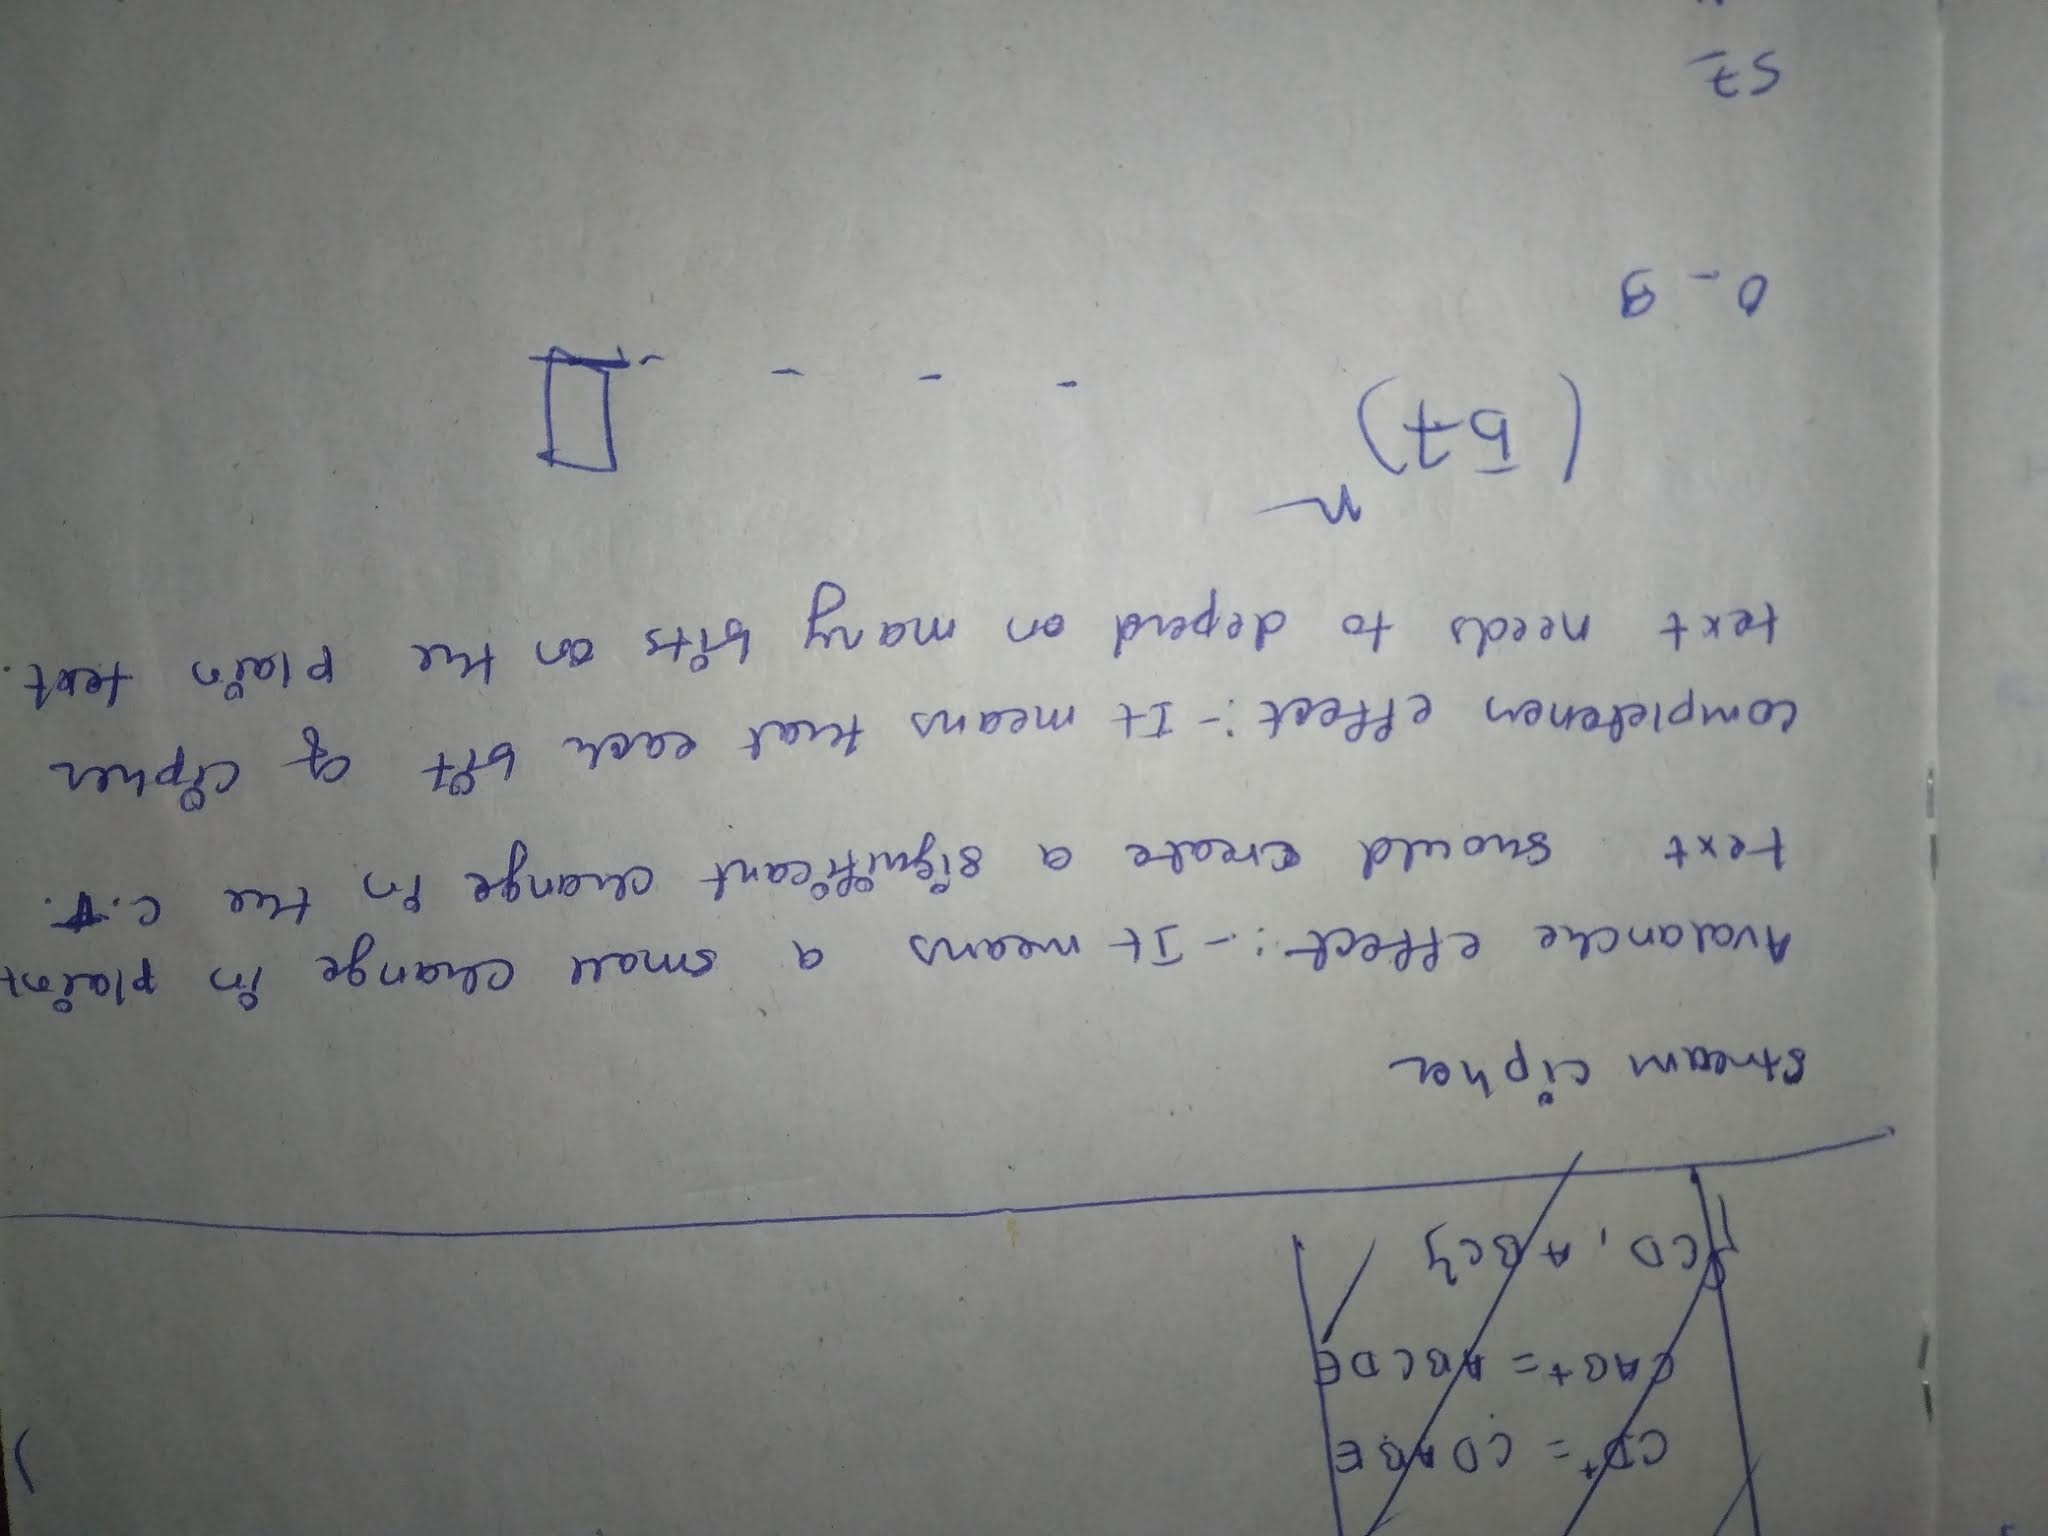 CD+ = CDABE
CAB+ = ABCDE
{CD, ABC}
Stream cipher
Avalanche effect :- It means a small change in plaint
text should create a significant change in the C.T.
completeness effect :- It means that each bit of cipher
text needs to depend on many bits on the plain text.
(57)^n
- - - -
0 - 9
57